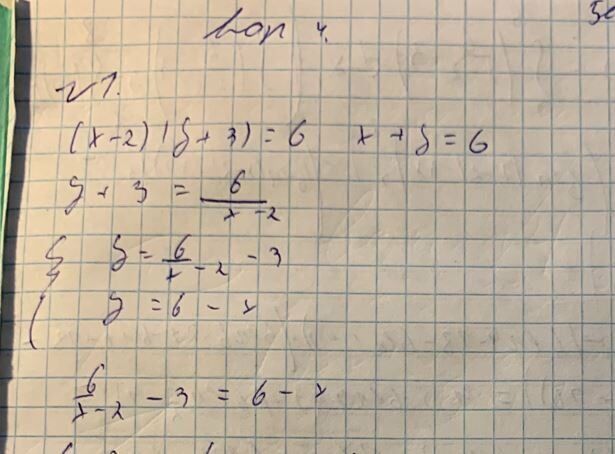 вар 4.
№1.
(x-2)(y+3)=6 x+y=6
y+3=6/(x-2)
{ y=6/(x-2)-3
y=6-x
6/(x-2)-3=6-x